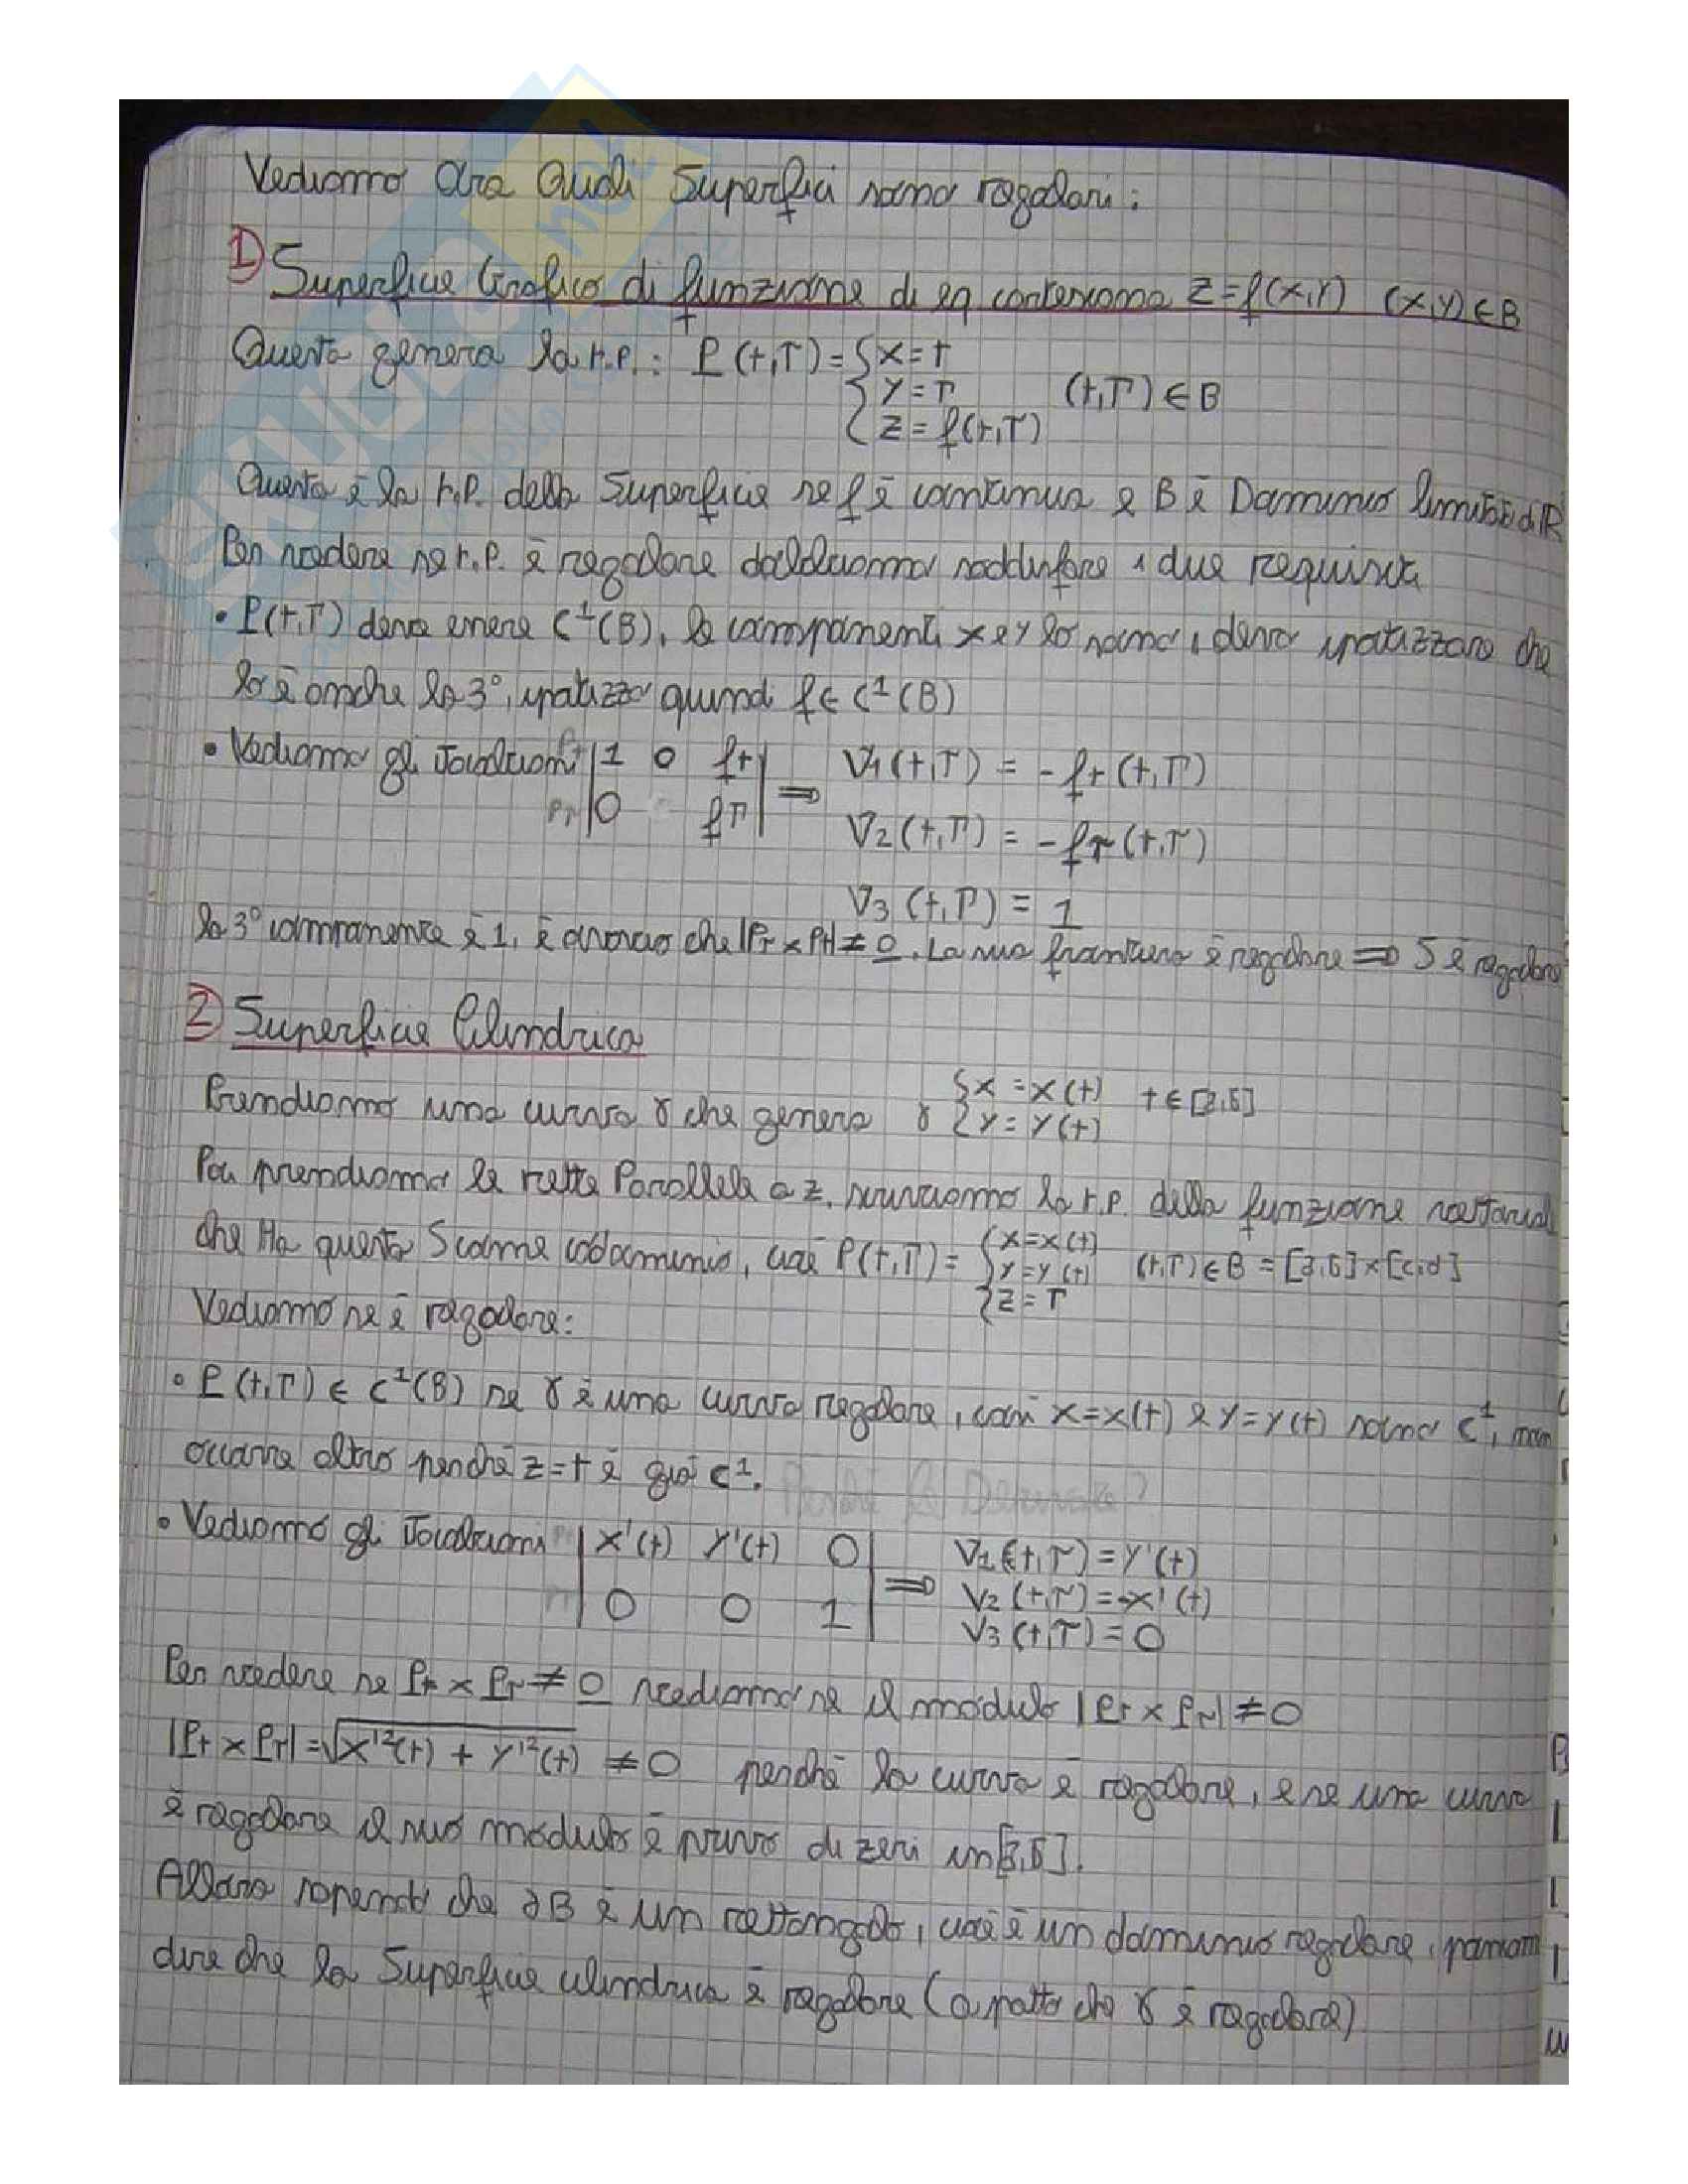 Vediamo Ora Quali Superfici sono regolari:
1) Superficie Grafico di funzione di eq cartesiana z=f(x,y) (x,y)∈B
Questa genera la r.p.: P(t,τ)= { x=t
y=τ (t,τ)∈B
z=f(t,τ)
Questa è la r.p. della Superficie se f è continua e B è Dominio limitato di R
Per vedere se r.p. è regolare dobbiamo soddisfare i due requisiti
• P(t,τ) deve essere C¹(B), le componenti x e y lo sono, devo ipotizzare che
lo è anche la 3°, ipotizzo quindi f∈C¹(B)
• Vediamo gli Jacobiani |1 0 ft| ⇒ V1(t,τ) = -ft(t,τ)
Pτ |0 fτ| V2(t,τ) = -fτ(t,τ)
V3(t,τ) = 1
la 3° componente è 1, è ovvio che |Pτ×Pt|≠0. La sua frontiera è regolare ⇒ S è regolare
2) Superficie Cilindrica
Prendiamo una curva γ che genera γ { x=x(t) t∈[a,b]
y=y(t)
Poi prendiamo le rette Parallele a z, scriviamo la r.p. della funzione vettorial
che Ha questo S come codominio, cioè P(t,τ)= { x=x(t)
y=y(t) (t,τ)∈B=[a,b]×[c,d]
z=τ
Vediamo se è regolare:
• P(t,τ)∈C¹(B) se γ è una curva regolare, così x=x(t) e y=y(t) sono C¹, non
occorre altro perchè z=t è già C¹.
• Vediamo gli Jacobiani |x'(t) y'(t) 0| ⇒ V1(t,τ)=y'(t)
|0 0 1| V2(t,τ)=-x'(t)
V3(t,τ)=0
Per vedere se Pt×Pτ≠0 vediamo se il modulo |Pt×Pτ|≠0
|Pt×Pτ|=√x'²(t)+y'²(t) ≠0 perchè la curva è regolare, e se una curva
è regolare il suo modulo è privo di zeri in [a,b].
Allora sapendo che ∂B è un rettangolo, cioè è un dominio regolare, possiam
dire che la Superficie cilindrica è regolare (a patto che γ è regolare)